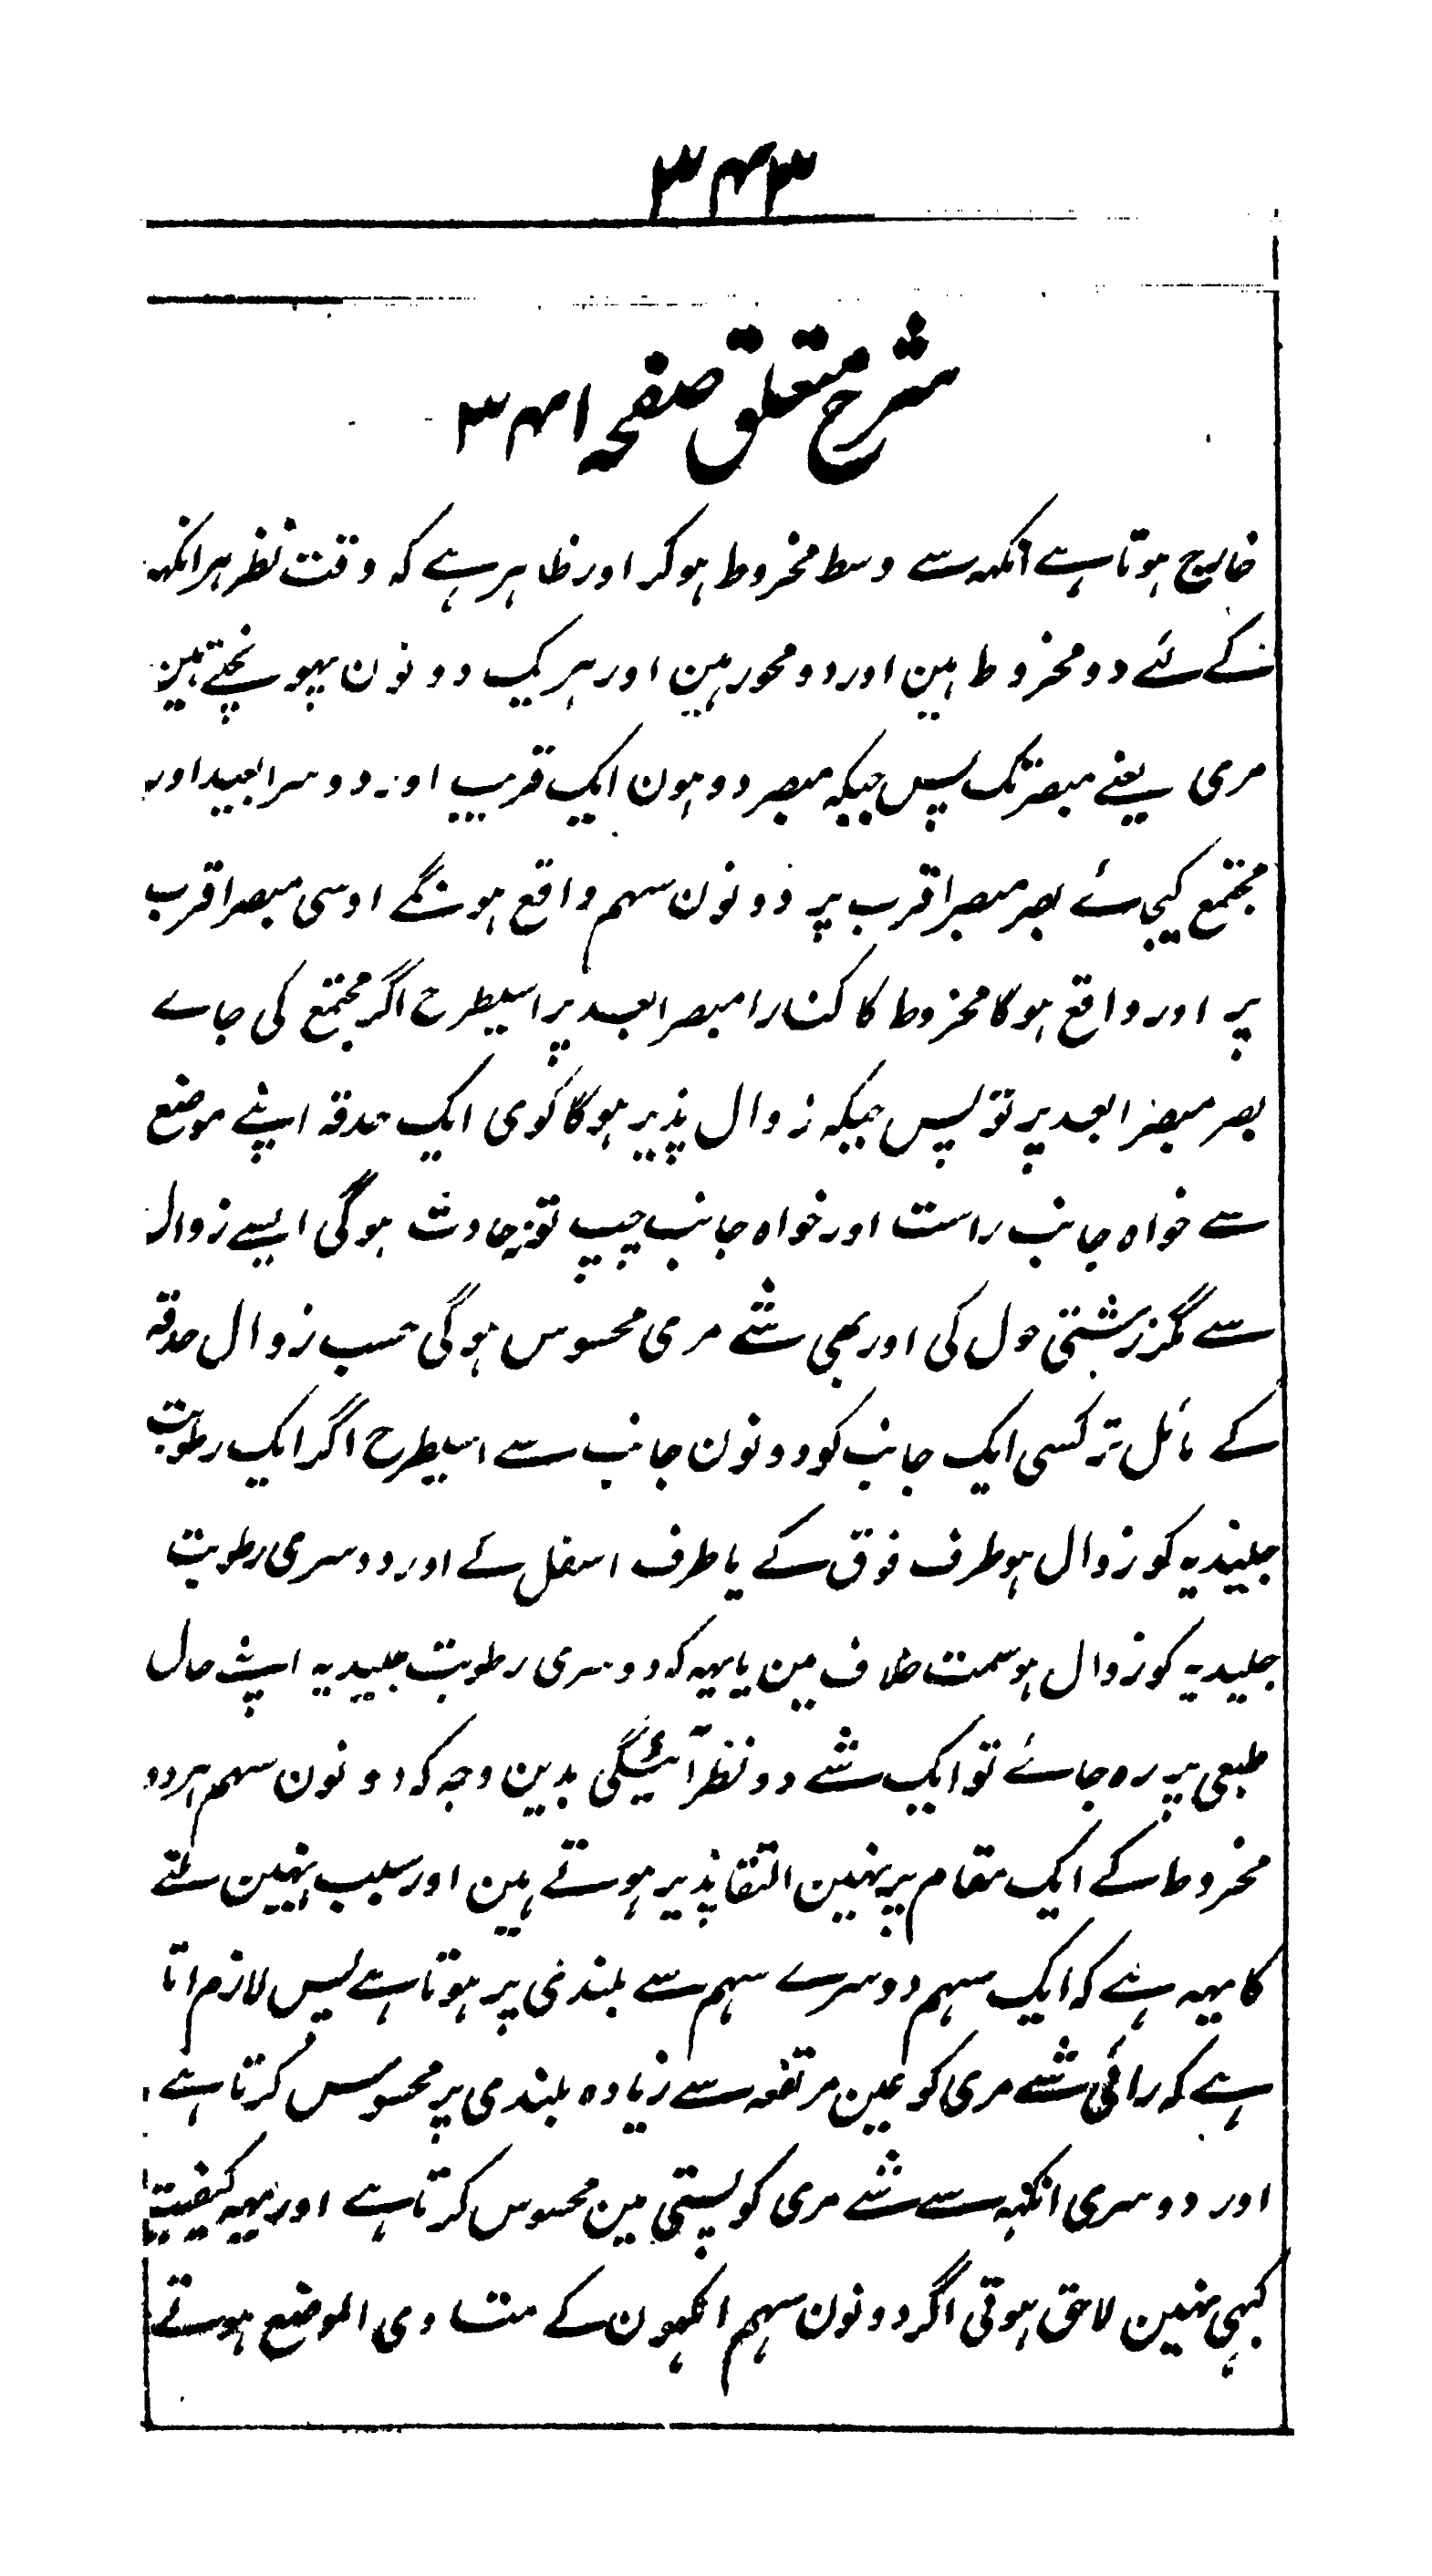 ۳۴۳
شرح متعلق صفحہ ۳۴۱
خارج ہوتا ہے انکہہ سے وسط مخروط ہوکر اور ظاہر ہے کہ وقت نظر ہر انکہہ
کے لئے دو مخروط ہین اور دو محور ہین اور ہر یک دونون پہونچتے ہین
مری یعنے مبصر تک پس جبکہ مبصر دو ہون ایک قریب اور دوسرا بعید اور
مجتمع کیجائے بصر مبصر اقرب پر دونون سہم واقع ہونگے اوسی مبصر اقرب
پر اور واقع ہوگا مخروط کا کنارا مبصر ابعد پر اسیطرح اگر مجتمع کی جاے
بصر مبصر ابعد پر تو پس جبکہ زوال پذیر ہوگا کوی ایک حدقہ اپنے موضع
سے خواہ جانب راست اور خواہ جانب چپ تو حادث ہوگی ایسے زوال
سے گزشتنی حول کی اور بھی شے مری محسوس ہوگی حسب زوال حدقہ
کے مائل تر کسی ایک جانب کو دونون جانب سے اسیطرح اگر ایک رطوبت
جلیدیہ کو زوال ہو طرف فوق کے یا طرف اسفل کے اور دوسری رطوبت
جلیدیہ کو زوال ہو سمت خلاف مین یا یہہ کہ دوسری رطوبت جلیدیہ اپنے حال
طبعی پر رہ جائے تو ایک شے دو نظر آئیگی بدین وجہ کہ دونون سہم ہر دو
مخروط کے ایک مقام پر نہین التقا پذیر ہوتے ہین اور سبب نہین ملتے
کا یہہ ہے کہ ایک سہم دوسرے سہم سے بلندی پر ہوتا ہے پس لازم اتا
ہے کہ رائی شے مری کو عین مرتفعہ سے زیادہ بلندی پر محسوس کرتا ہے
اور دوسری انکہہ سے شے مری کو پستی مین محسوس کرتا ہے اور یہہ کیفیت
کبہی نہین لاحق ہوتی اگر دونون سہم انکہون کے متساوی الموضع ہوتے